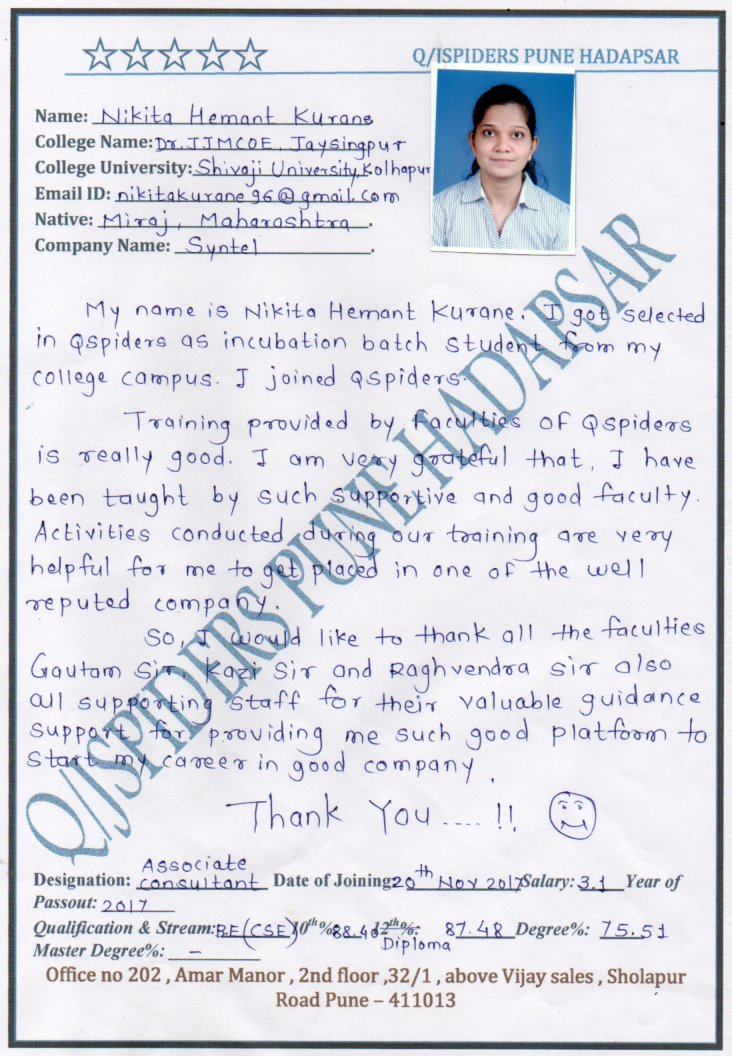 Q/JSPIDERS PUNE HADAPSAR
Name: Nikita Hemant Kurane
College Name: Dr. JJMCOE, Jaysingpur
College University: Shivaji University, Kolhapur
Email ID: nikitakurane96@gmail.com
Native: Miraj, Maharashtra.
Company Name: Syntel.
My name is Nikita Hemant Kurane. I got selected
in Qspiders as incubation batch student from my
college campus. I joined Qspiders.
Training provided by faculties of Qspiders
is really good. I am very grateful that, I have
been taught by such supportive and good faculty.
Activities conducted during our training are very
helpful for me to get placed in one of the well
reputed company.
So, I would like to thank all the faculties
Gautam Sir, Kazi Sir and Raghvendra sir also
all supporting staff for their valuable guidance
support for providing me such good platform to
start my career in good company.
Thank You.... !!
Q/JSPIDERS PUNE HADAPSAR
Designation: Associate consultant Date of Joining: 20th Nov 2017 Salary: 3.1 Year of
Passout: 2017
Qualification & Stream: BE(CSE) 10th%: 88.46 12th%: Diploma 87.48 Degree%: 75.51
Master Degree%: -
Office no 202 , Amar Manor , 2nd floor ,32/1 , above Vijay sales , Sholapur
Road Pune – 411013